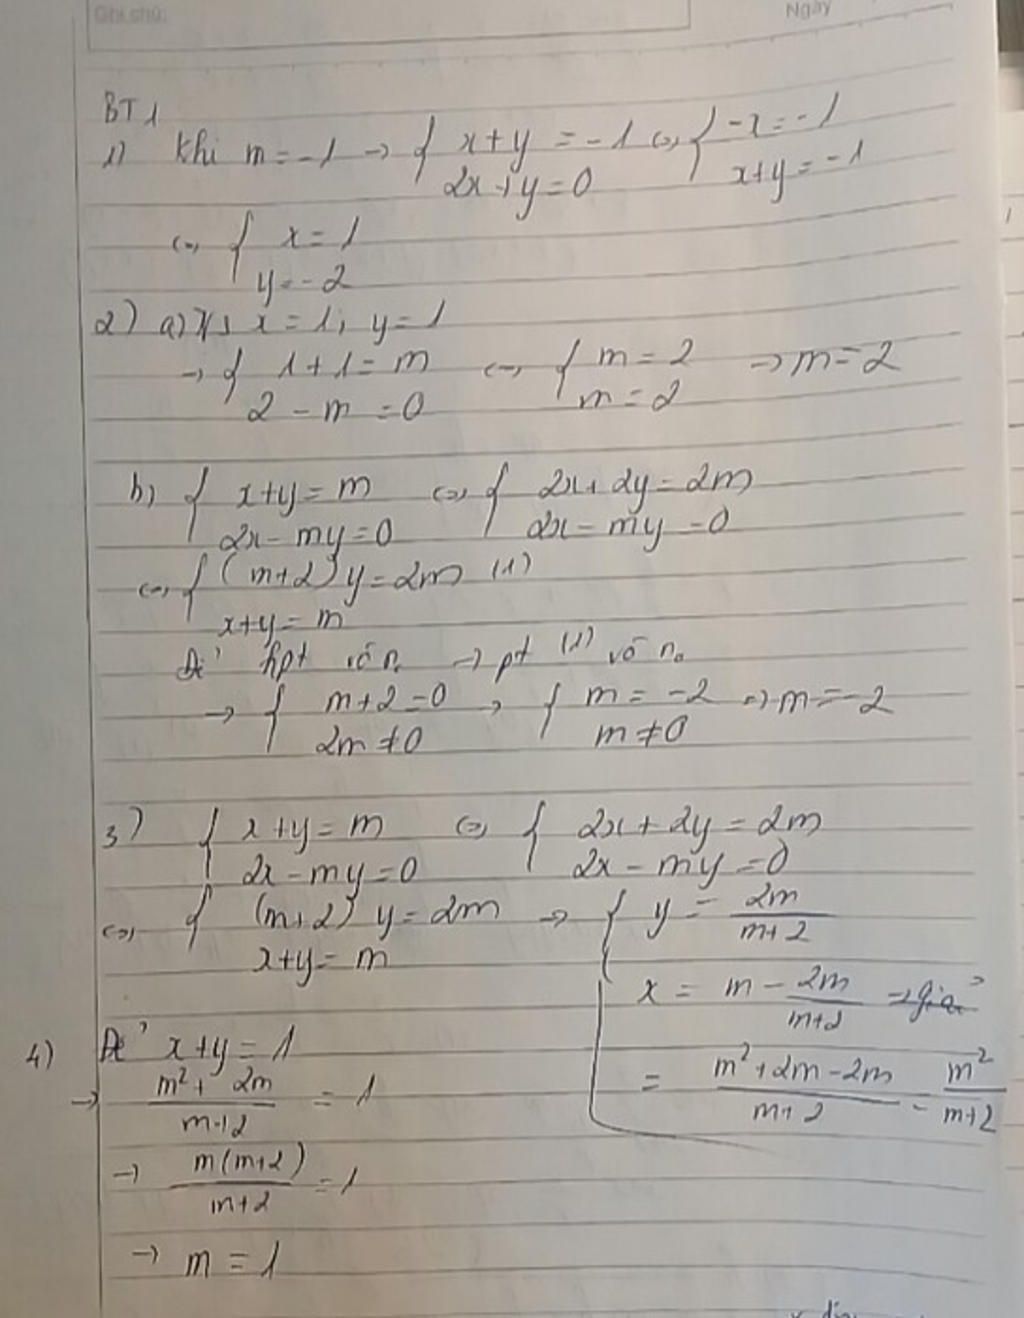 Ghi chú:
Ngày
BT1
1) Khi m = -1 → { x+y = -1 ⇔ { -x = -1
2x+y = 0 x+y = -1
⇔ { x = 1
y = -2
2) a) x = 1; y = 1
→ { 1+1 = m ⇔ { m = 2 → m = 2
2 - m = 0 m = 2
b) { x+y = m ⇔ { 2x+2y = 2m
2x - my = 0 2x - my = 0
⇔ { (m+2)y = 2m (1)
x+y = m
Để hpt vô n. → pt (1) vô n.
→ { m+2 = 0 , { m = -2 → m = -2
2m ≠ 0 m ≠ 0
3) { x+y = m ⇔ { 2x+2y = 2m
2x - my = 0 2x - my = 0
⇔ { (m+2)y = 2m → { y = 2m/(m+2)
x+y = m
x = m - 2m/(m+2)
= (m²+2m-2m)/(m+2) = m²/(m+2)
4) Để x+y = 1
→ (m²+2m)/(m+2) = 1
→ m(m+2)/(m+2) = 1
→ m = 1